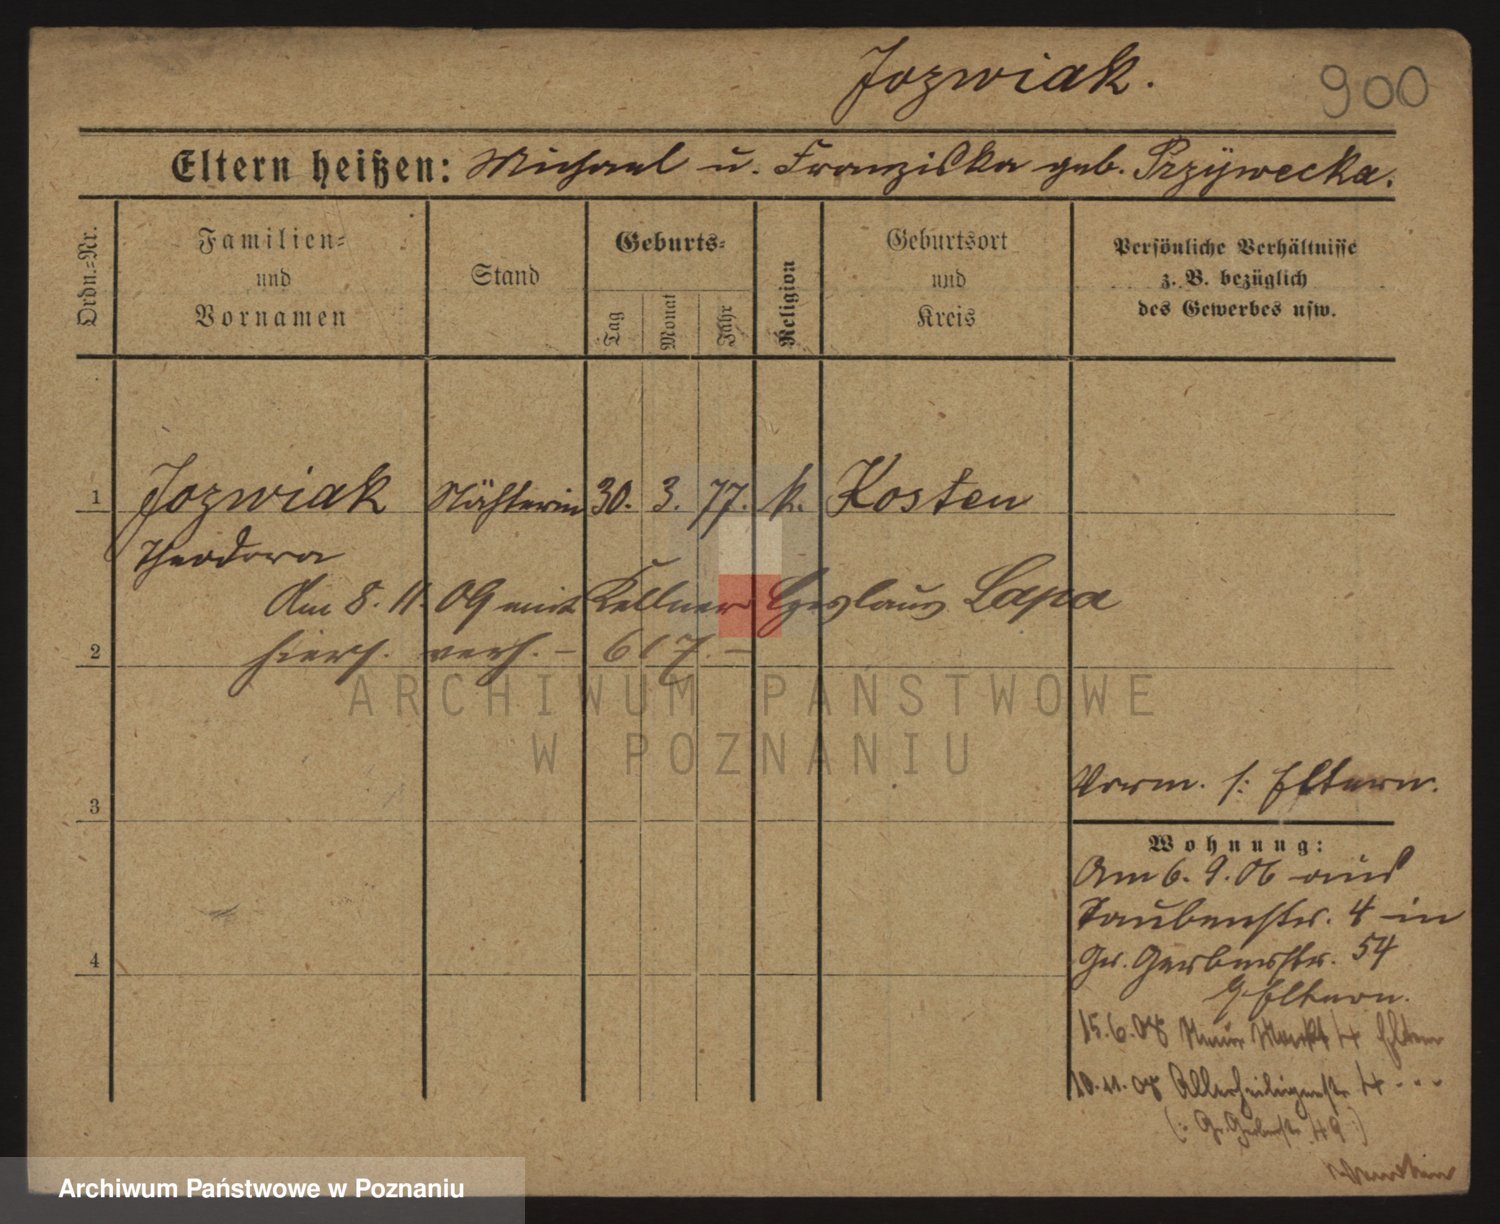 Jozwiak.
900
Eltern heißen: Michael u. Franziska geb. Przÿwecka.
Ordn.-Nr.
Familien-
und
Vornamen
Stand
Geburts-
Tag
Monat
Jahr
Religion
Geburtsort
und
Kreis
Persönliche Verhältnisse
z. B. bezüglich
des Gewerbes usw.
1 Jozwiak Nähterin 30. 3. 77. k. Kosten
Theodora
Am 8. 11. 09 mit Kellner Ceslaus Lapa
2 hiers. verh. - 617. -
ARCHIWUM PAŃSTWOWE
W POZNANIU
Verm. s: Eltern.
3
Wohnung:
Am 6. 9. 06 aus
Taubenstr. 4 in
Gr. Gerberstr. 54
Eltern.
4
15.6.08 Neuer Markt 4 Eltern
10.11.08 Allerheiligenstr. 4 - - -
(: Gr. Gerberstr. 49 :)
Archiwum Państwowe w Poznaniu